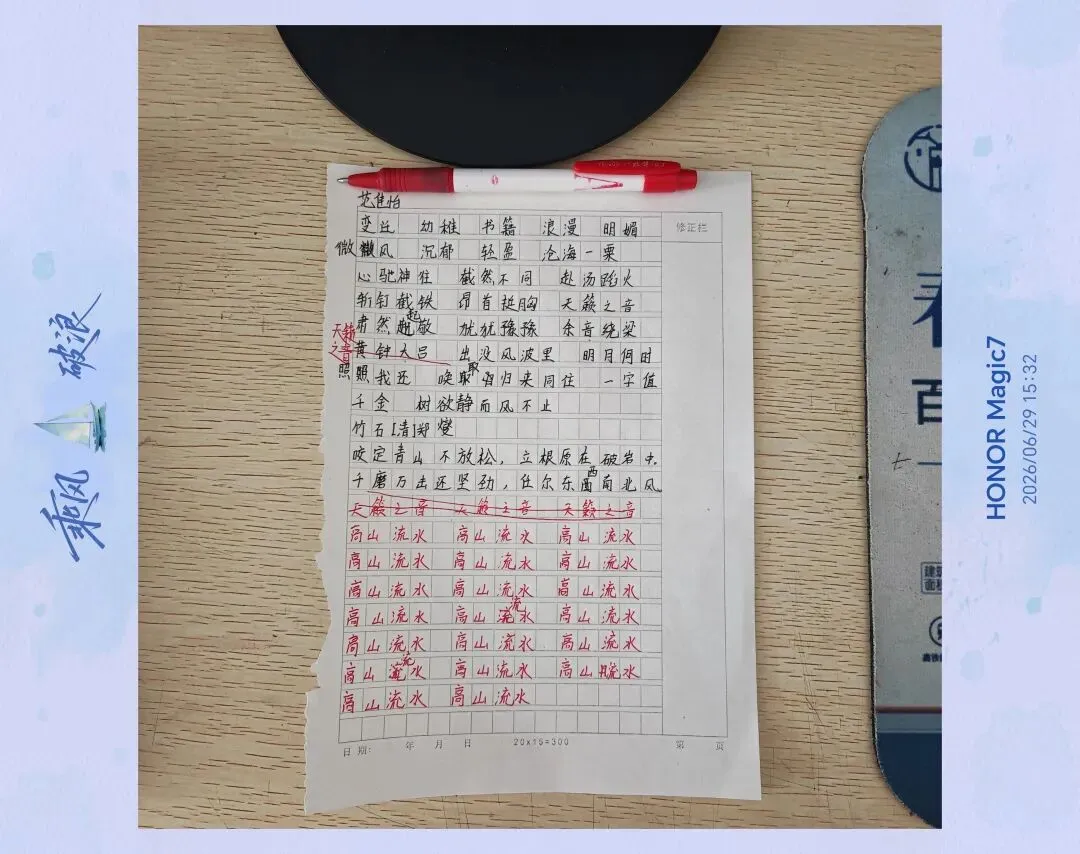 乘风 破浪
范佳怡
修正栏
变迁 幼稚 书籍 浪漫 明媚
微 微风 沉郁 轻盈 沧海一粟
心驰神往 截然不同 赴汤蹈火
斩钉截铁 昂首挺胸 天籁之音
肃然起敬 犹犹豫豫 余音绕梁
天籁之音
黄钟大吕 出没风波里 明月何时
照 照我还 唤取归来同住 一字值
千金 树欲静而风不止
竹石[清]郑燮
咬定青山不放松，立根原在破岩中。
千磨万击还坚劲，任尔东西南北风
天籁之音 天籁之音 天籁之音
高山流水 高山流水 高山流水
高山流水 高山流水 高山流水
高山流水 高山流水 高山流水
高山流水 高山流水 高山流水
高山流水 高山流水 高山流水
高山流水 高山流水 高山流水
高山流水 高山流水
日期: 年 月 日 20x15=300 第 页
HONOR Magic7
2026/06/29 15:32